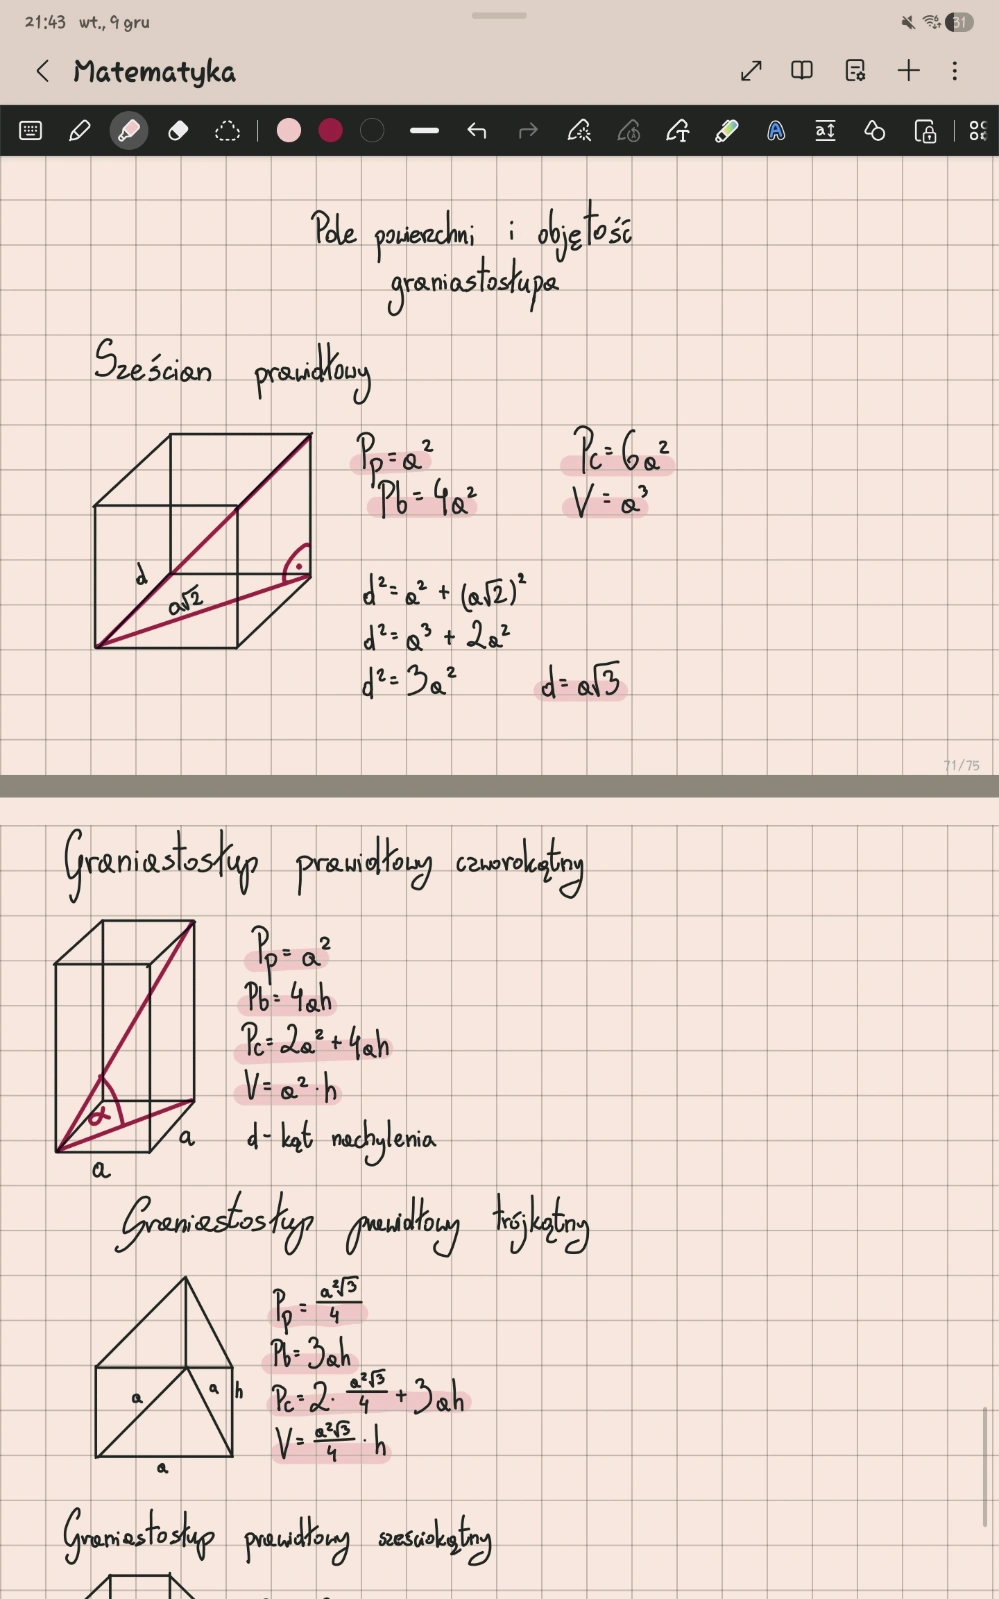 21:43 wt., 9 gru
31
Matematyka
Pole powierzchni i objętość
graniastosłupa
Sześcian prawidłowy
Pp = a²
Pb = 4a²
Pc = 6a²
V = a³
d
a√2
d² = a² + (a√2)²
d² = a³ + 2a²
d² = 3a²
d = a√3
71/75
Graniastosłup prawidłowy czworokątny
Pp = a²
Pb = 4ah
Pc = 2a² + 4ah
V = a² · h
α
a
a
d - kąt nachylenia
Graniastosłup prawidłowy trójkątny
Pp = a²√3/4
Pb = 3ah
Pc = 2 · a²√3/4 + 3ah
V = a²√3/4 · h
a
a
h
a
Graniastosłup prawidłowy sześciokątny